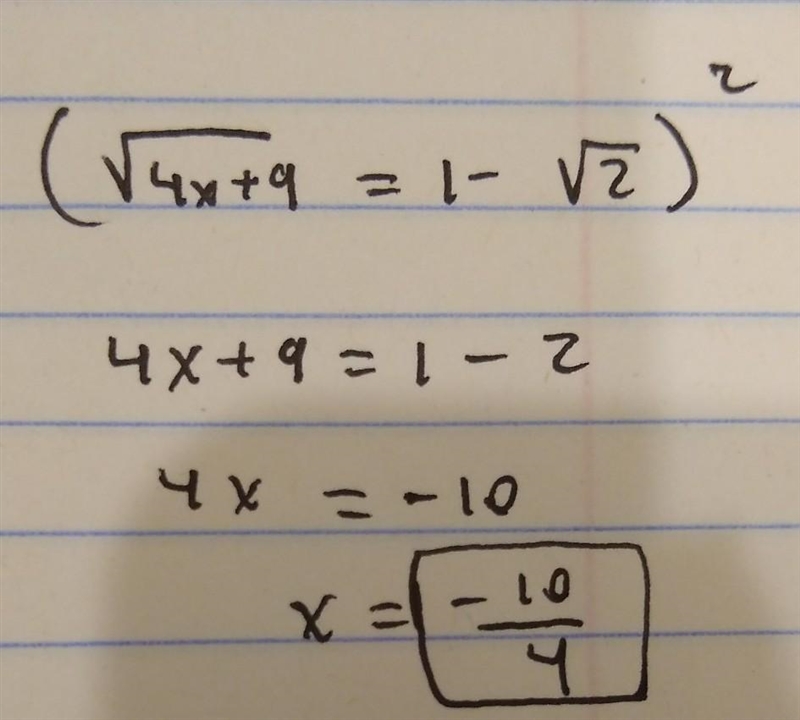 (√4x+9 = 1 - √2)²
4x + 9 = 1 - 2
4x = -10
x = -10/4